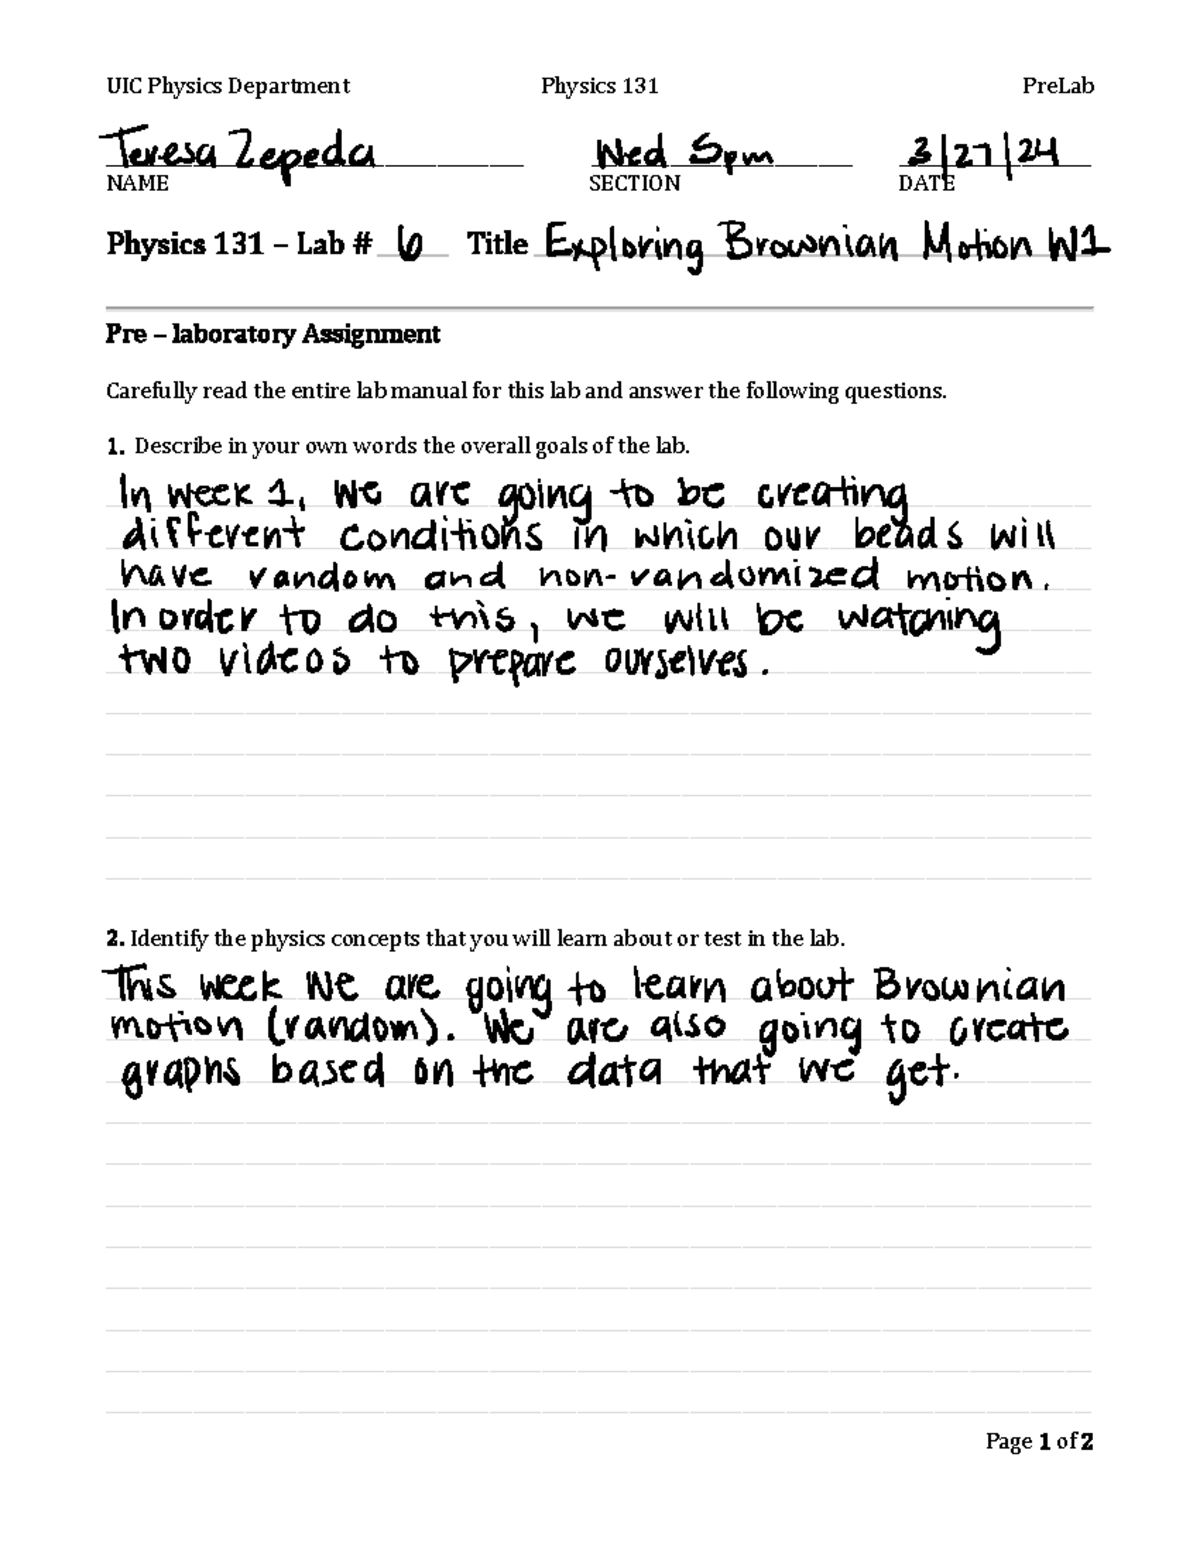 UIC Physics Department Physics 131 PreLab
Teresa Zepeda Wed 5pm 3/27/24
NAME SECTION DATE
Physics 131 – Lab # 6 Title Exploring Brownian Motion W1
Pre – laboratory Assignment
Carefully read the entire lab manual for this lab and answer the following questions.
1. Describe in your own words the overall goals of the lab.
In week 1, we are going to be creating
different conditions in which our beads will
have random and non-randomized motion.
In order to do this, we will be watching
two videos to prepare ourselves.
2. Identify the physics concepts that you will learn about or test in the lab.
This week we are going to learn about Brownian
motion (random). We are also going to create
graphs based on the data that we get.
Page 1 of 2